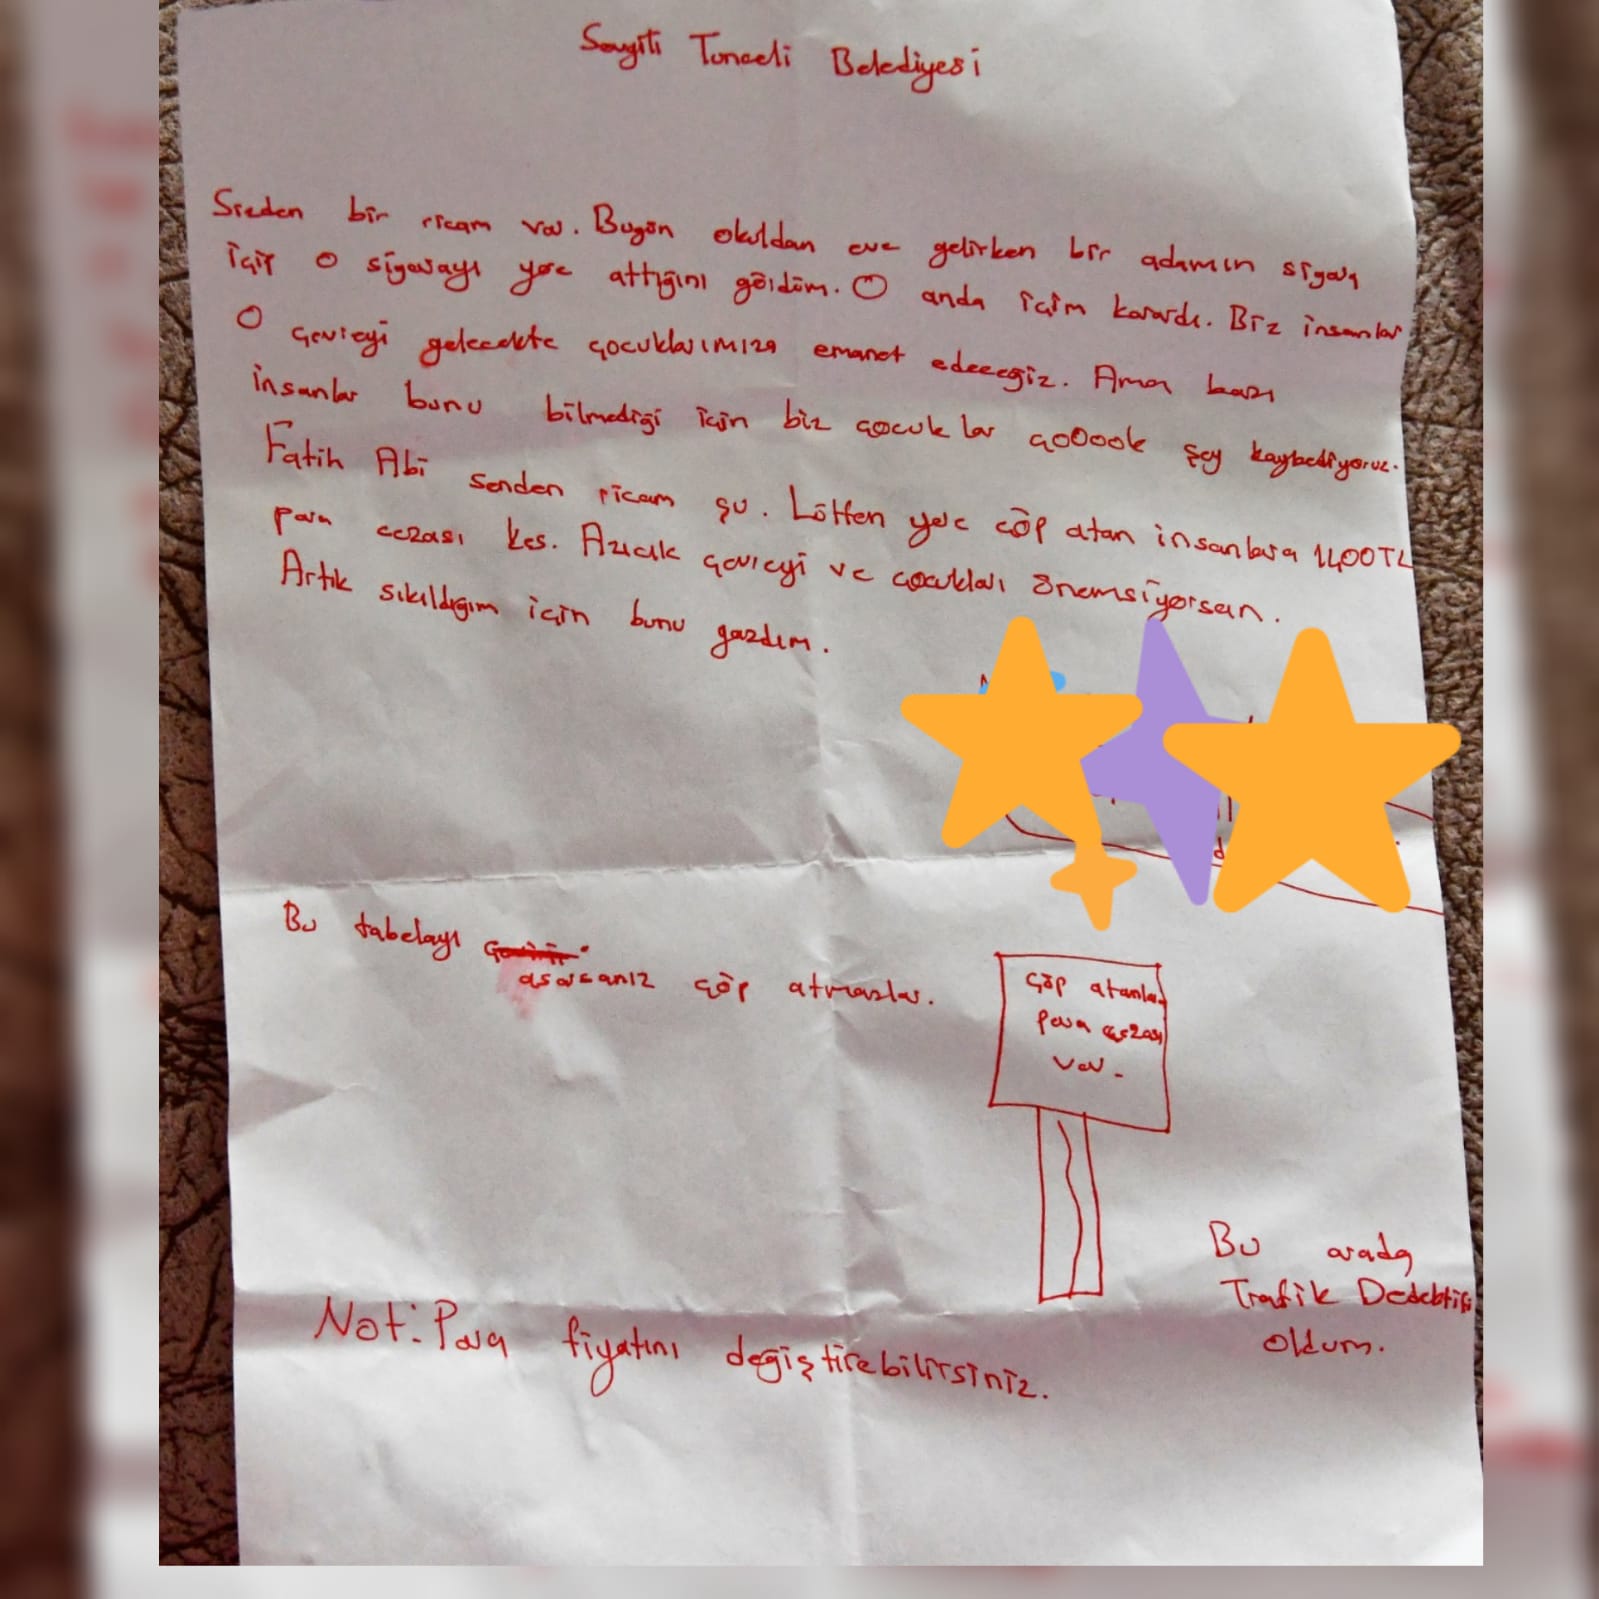 Sevgili Tunceli Belediyesi
Sizden bir ricam var. Bugün okuldan eve gelirken bir adamın sigara
içip o sigarayı yere attığını gördüm. O anda içim karardı. Biz insanlar
O çevreyi gelecekte çocuklarımıza emanet edeceğiz. Ama bazı
insanlar bunu bilmediği için biz çocuklar çoOook şey kaybediyoruz.
Fatih Abi senden ricam şu. Lütfen yere çöp atan insanlara 1400TL
para cezası kes. Azıcık çevreyi ve çocukları önemsiyorsan.
Artık sıkıldığım için bunu yazdım.
Bu tabelayı
asarsanız çöp atmazlar.
çöp atanlar
para cezası
var.
Bu arada
Trafik Dedektifi
oldum.
Not: Para fiyatını değiştirebilirsiniz.